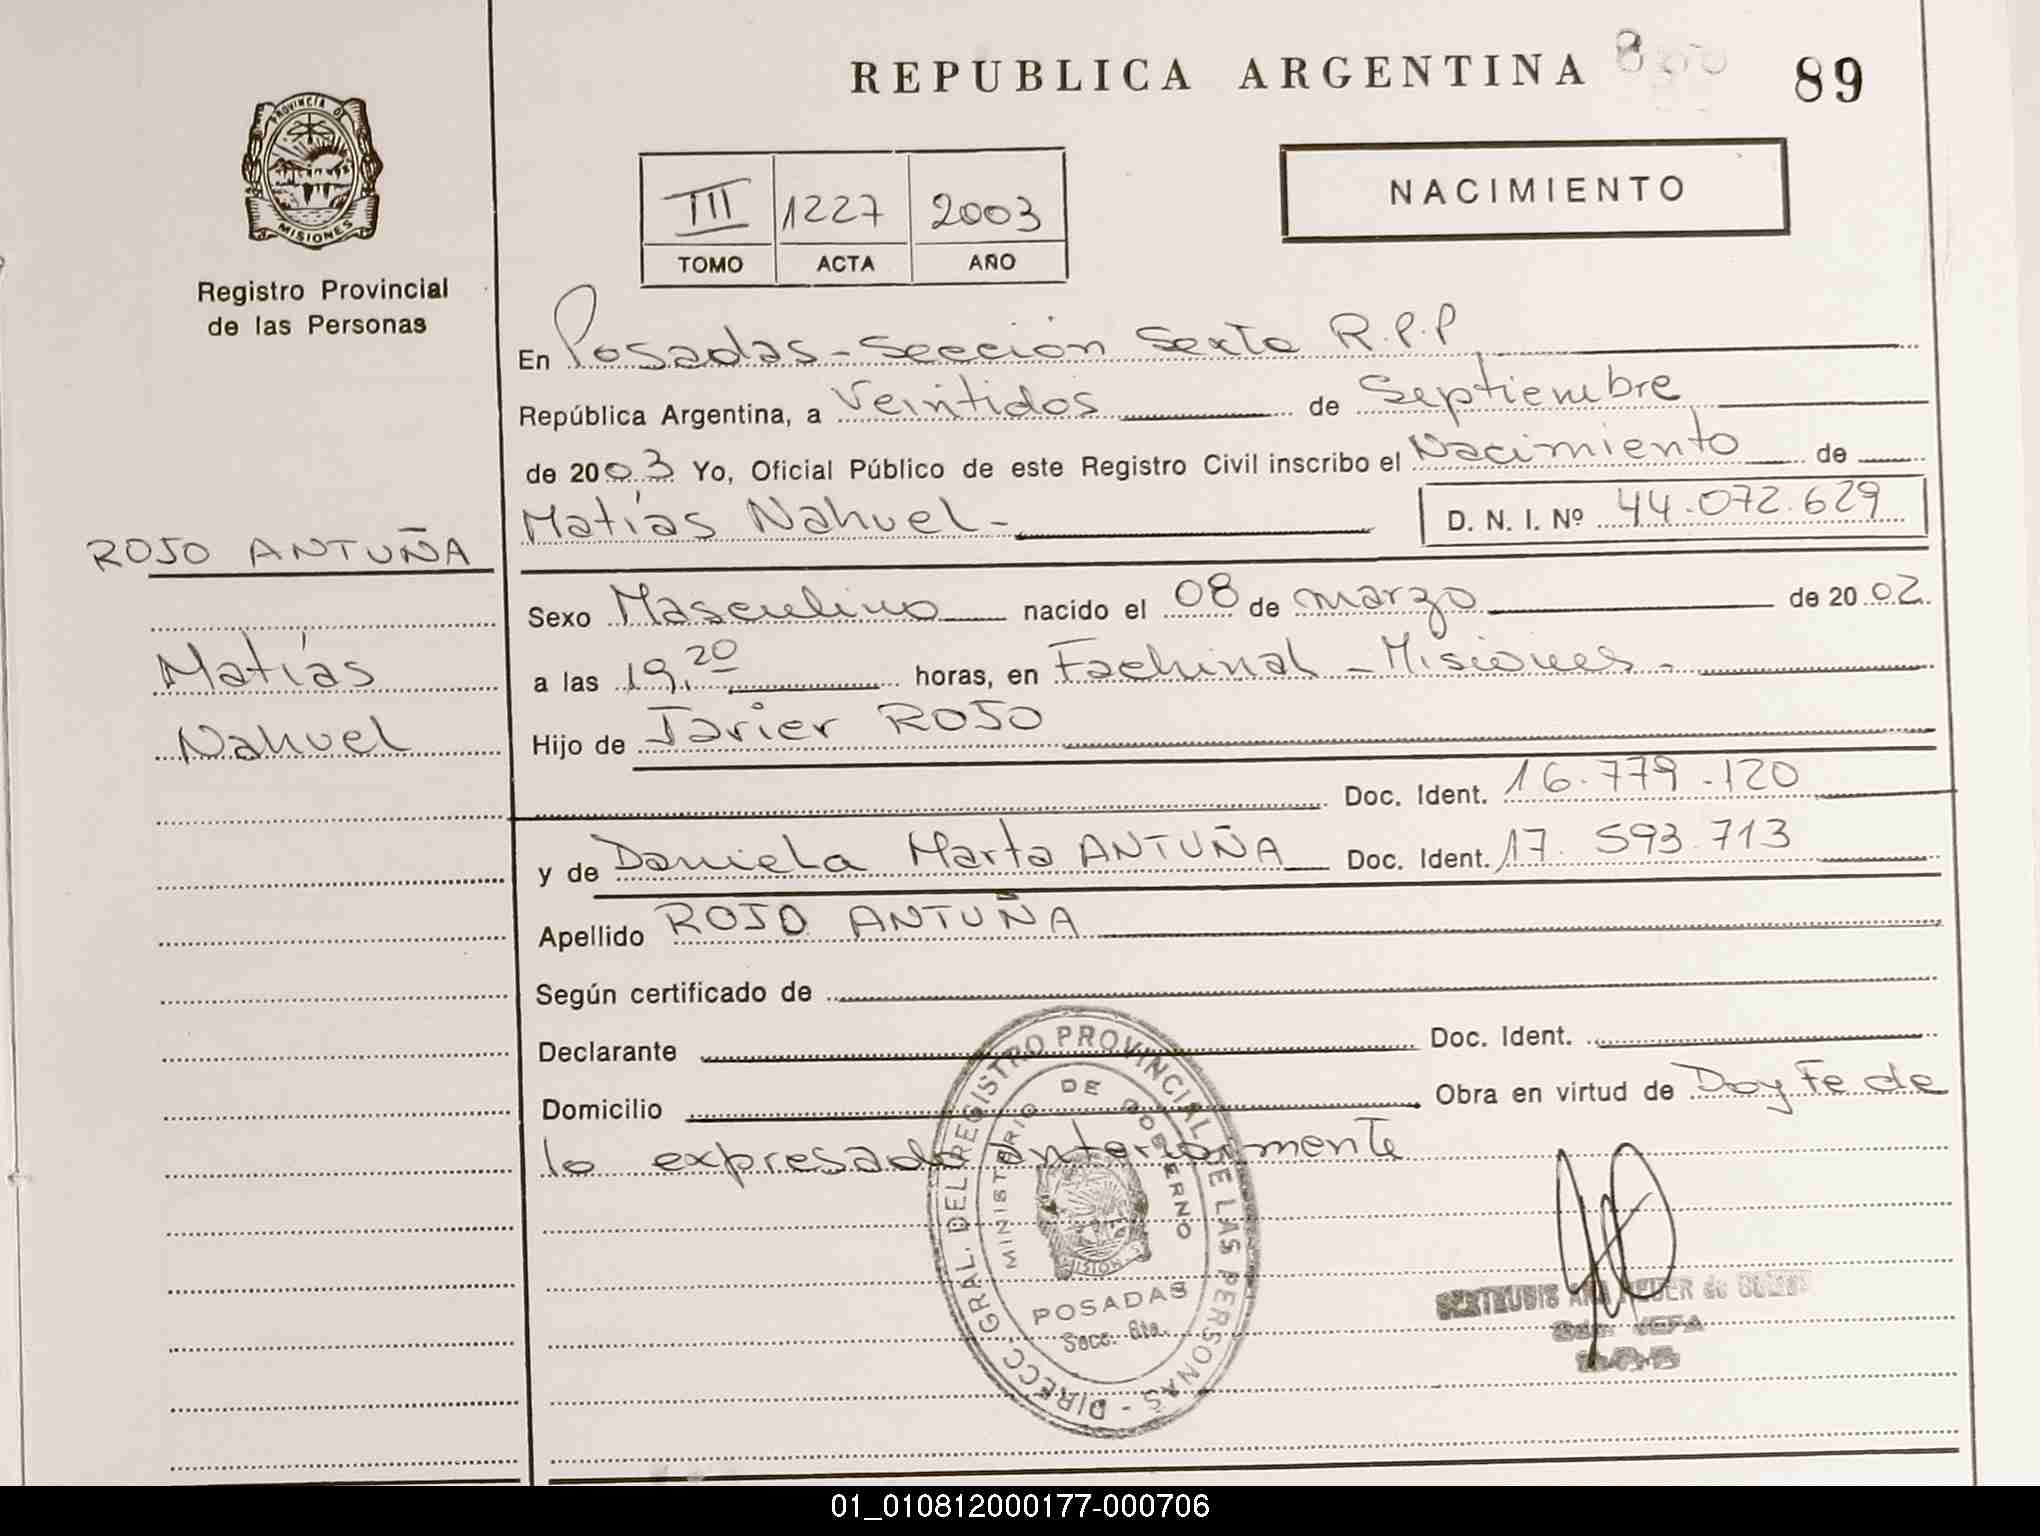 REPUBLICA ARGENTINA
89
PROVINCIA DE
MISIONES
Registro Provincial
de las Personas
III 1227 2003
TOMO ACTA AÑO
NACIMIENTO
En Posadas - Sección Sexta R.P.P
República Argentina, a Veintidos de Septiembre
de 2003 Yo, Oficial Público de este Registro Civil inscribo el Nacimiento de
Matías Nahuel -
D. N. I. Nº 44.072.629
ROJO ANTUÑA
Matías
Nahuel
Sexo Masculino nacido el 08 de marzo de 2002.
a las 19,20 horas, en Fachinal - Misiones -
Hijo de Javier ROJO
Doc. Ident. 16.779.120
y de Daniela Marta ANTUÑA Doc. Ident. 17.593.713
Apellido ROJO ANTUÑA
Según certificado de
Declarante Doc. Ident.
Domicilio Obra en virtud de Doy Fe de
lo expresado anteriormente
DIRECC. GRAL. DEL REGISTRO PROVINCIAL DE LAS PERSONAS -
MINISTERIO DE GOBIERNO
MISIONES
POSADAS
Secc. 6ta.
JEFA
01_010812000177-000706